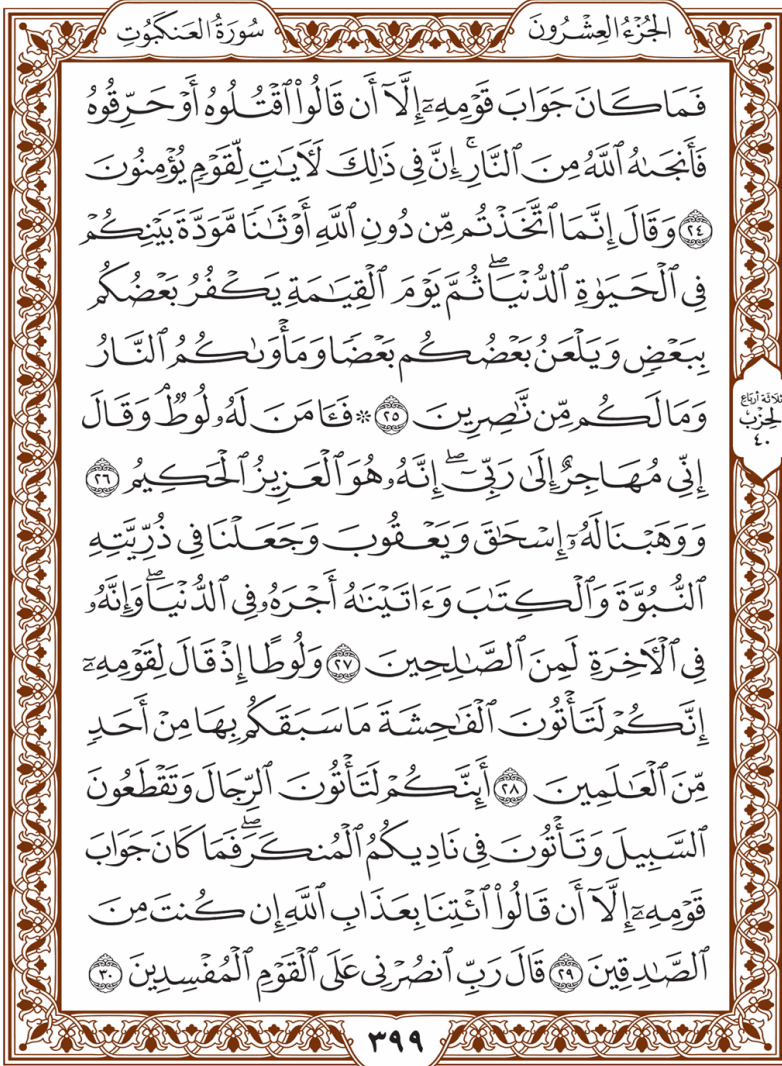 الجُزْءُ العِشْرُونَ
سُورَةُ العَنكَبُوتِ
فَمَا كَانَ جَوَابَ قَوْمِهِۦٓ إِلَّآ أَن قَالُوا۟ ٱقْتُلُوهُ أَوْ حَرِّقُوهُ
فَأَنجَىٰهُ ٱللَّهُ مِنَ ٱلنَّارِ ۚ إِنَّ فِى ذَٰلِكَ لَـَٔايَـٰتٍ لِّقَوْمٍ يُؤْمِنُونَ
٢٤ وَقَالَ إِنَّمَا ٱتَّخَذْتُم مِّن دُونِ ٱللَّهِ أَوْثَـٰنًا مَّوَدَّةَ بَيْنِكُمْ
فِى ٱلْحَيَوٰةِ ٱلدُّنْيَا ۖ ثُمَّ يَوْمَ ٱلْقِيَـٰمَةِ يَكْفُرُ بَعْضُكُم
بِبَعْضٍ وَيَلْعَنُ بَعْضُكُم بَعْضًا وَمَأْوَىٰكُمُ ٱلنَّارُ
وَمَا لَكُم مِّن نَّـٰصِرِينَ ٢٥ ۞ فَـَٔامَنَ لَهُۥ لُوطٌ ۘ وَقَالَ
إِنِّى مُهَاجِرٌ إِلَىٰ رَبِّىٓ ۖ إِنَّهُۥ هُوَ ٱلْعَزِيزُ ٱلْحَكِيمُ ٢٦
وَوَهَبْنَا لَهُۥٓ إِسْحَـٰقَ وَيَعْقُوبَ وَجَعَلْنَا فِى ذُرِّيَّتِهِ
ٱلنُّبُوَّةَ وَٱلْكِتَـٰبَ وَءَاتَيْنَـٰهُ أَجْرَهُۥ فِى ٱلدُّنْيَا ۖ وَإِنَّهُۥ
فِى ٱلْـَٔاخِرَةِ لَمِنَ ٱلصَّـٰلِحِينَ ٢٧ وَلُوطًا إِذْ قَالَ لِقَوْمِهِۦٓ
إِنَّكُمْ لَتَأْتُونَ ٱلْفَـٰحِشَةَ مَا سَبَقَكُم بِهَا مِنْ أَحَدٍ
مِّنَ ٱلْعَـٰلَمِينَ ٢٨ أَئِنَّكُمْ لَتَأْتُونَ ٱلرِّجَالَ وَتَقْطَعُونَ
ٱلسَّبِيلَ وَتَأْتُونَ فِى نَادِيكُمُ ٱلْمُنكَرَ ۖ فَمَا كَانَ جَوَابَ
قَوْمِهِۦٓ إِلَّآ أَن قَالُوا۟ ٱئْتِنَا بِعَذَابِ ٱللَّهِ إِن كُنتَ مِنَ
ٱلصَّـٰدِقِينَ ٢٩ قَالَ رَبِّ ٱنصُرْنِى عَلَى ٱلْقَوْمِ ٱلْمُفْسِدِينَ ٣٠
ثلاثة أرباع
الحِزْب
٤٠
٣٩٩